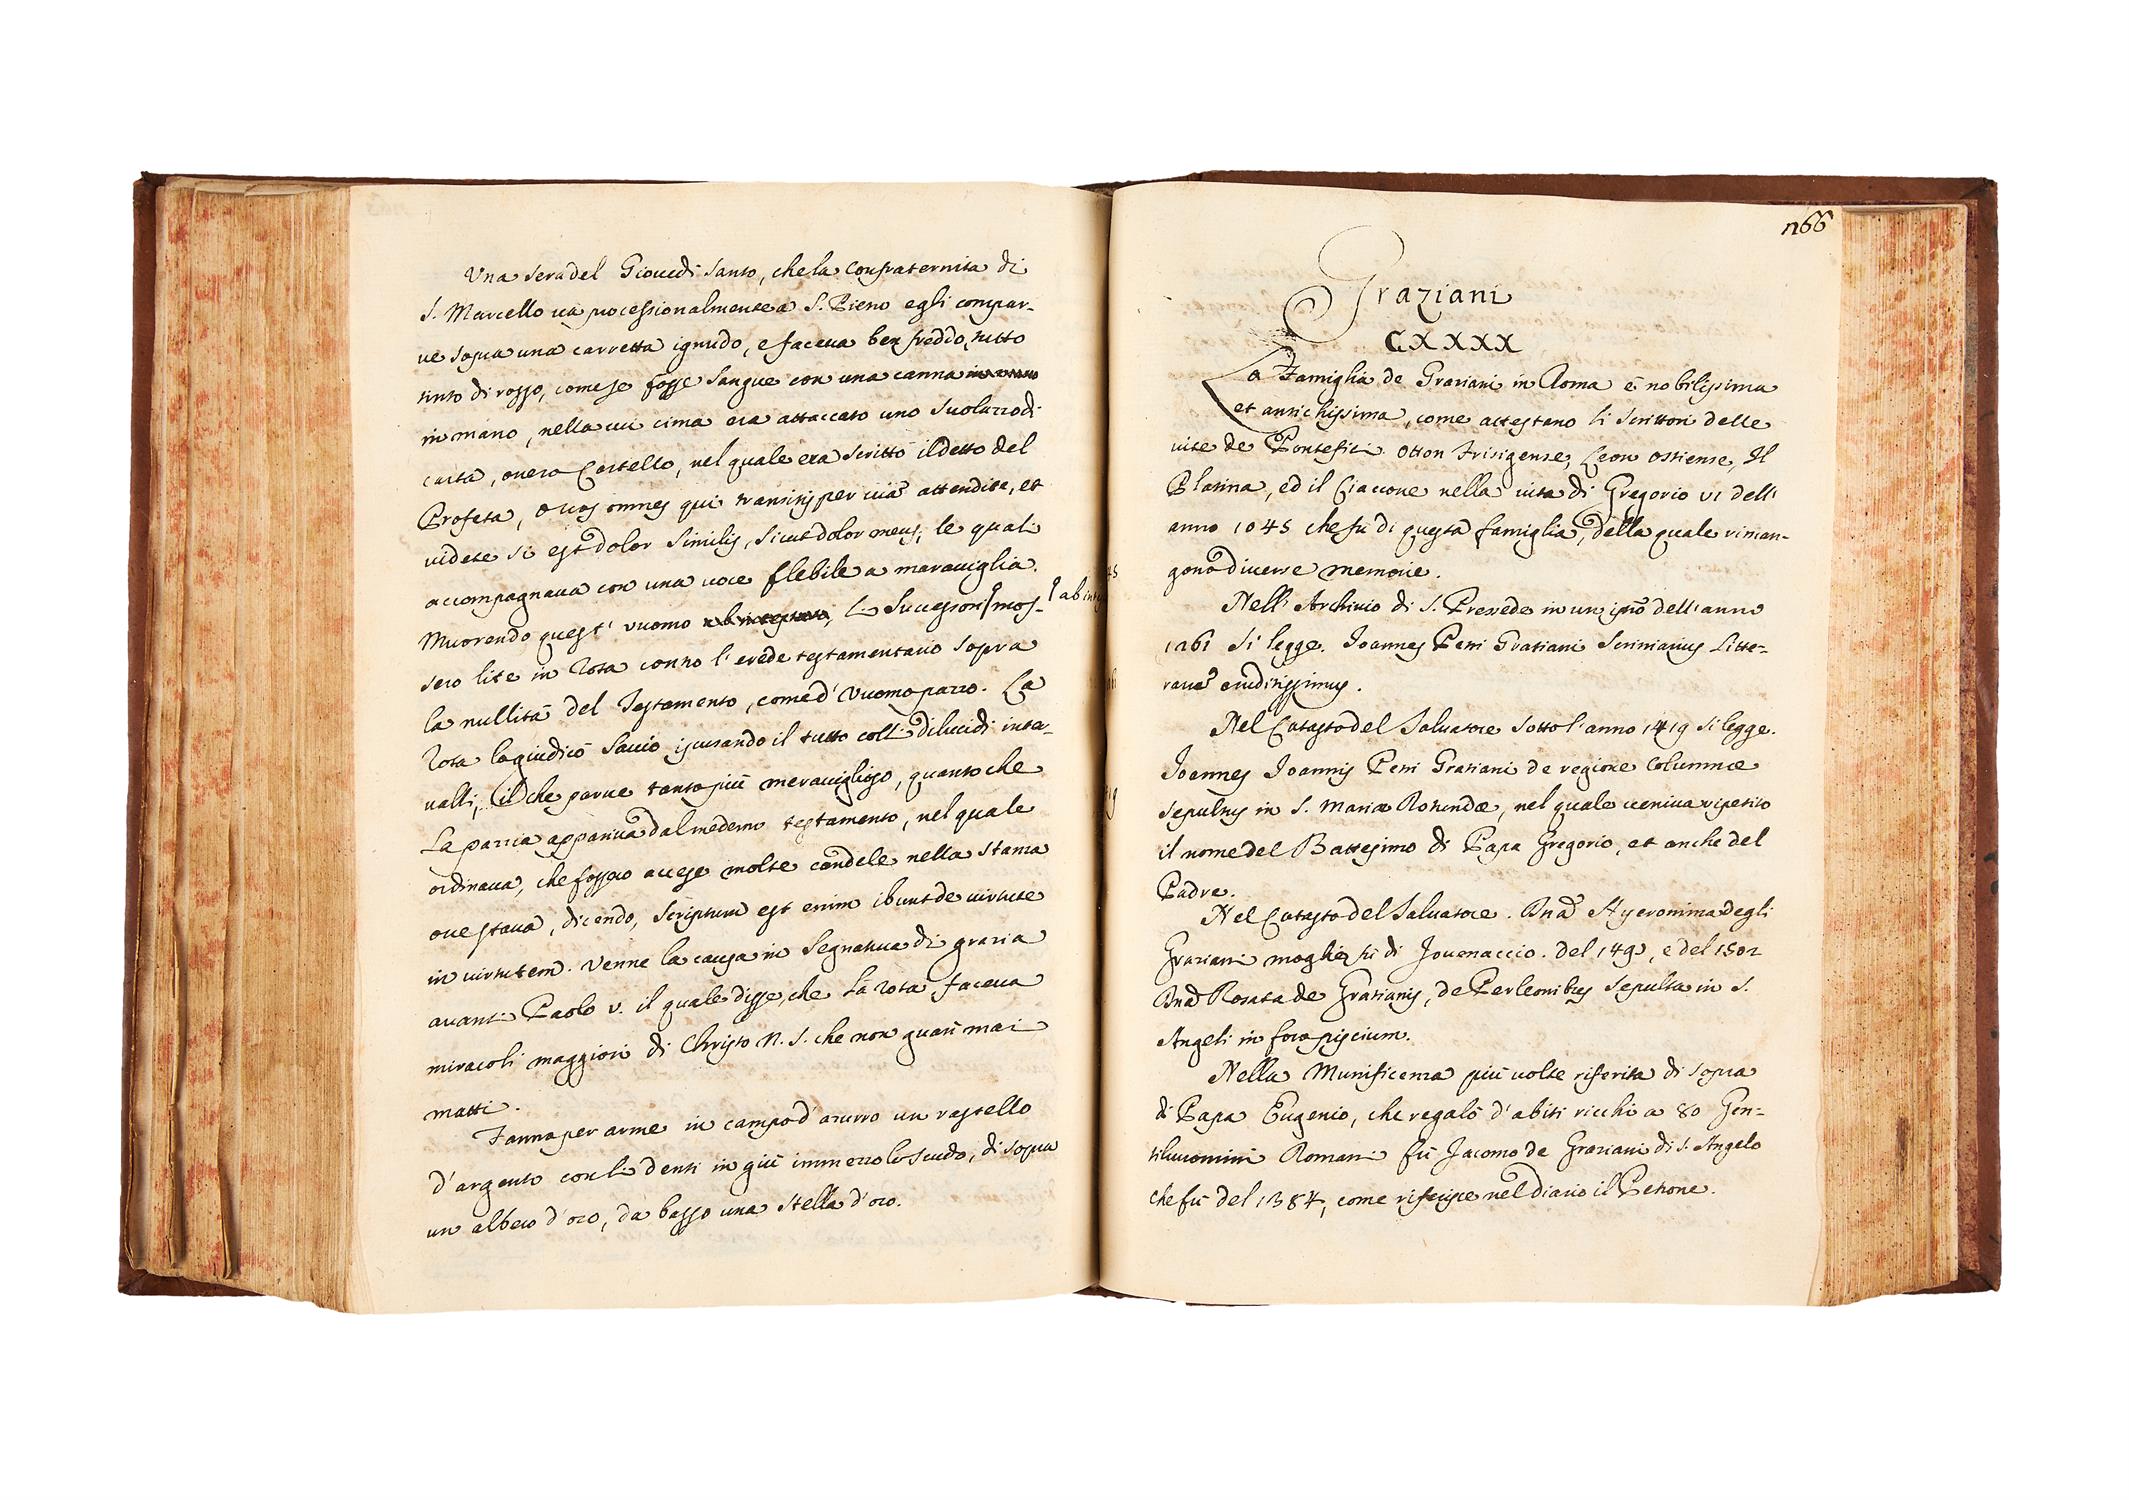 Una sera del Giouedi Santo, che la Confraternita di
S. Marcello uà processionalmente a S. Pietro egli compar-
ue sopra una carretta ignudo, e faceua ben freddo, tutto
tinto di rosso, come se fosse sangue con una canna
in mano, nella cui cima era attaccato uno suolazzo di
carta, ouero Cartello, nel quale era scritto il detto del
Profeta, o uos omnes qui transitis per uiã attendite, et
uidete si est dolor similis, sicut dolor meus, le quali
accompagnaua con una uoce flebile a marauiglia.
Muorendo quest' vuomo ab intestato, li Successori mos-
ab int
sero lite in Rota contro l'erede testamentario sopra
la nullità del Testamento, come d'vuomo pazzo. La
Rota lo giudicò Sauio iscusando il tutto coll: dilucidi inter-
ualli, il che parue tanto più merauiglioso, quanto che
La pazzia appariua dal medemo testamento, nel quale
ordinaua, che fossero accese molte candele nella stanza
oue staua, dicendo, scriptum est enim ibunt de uirtute
in uirtutem. Venne la causa in Segnatura di grazia
auanti Paolo V. il quale disse, che La Rota faceua
miracoli maggiori di Christo N. S. che non guarì mai
matti.
Fanno per arme in campo d'azurro un rastello
d'argento con li denti in giù immezzo lo scudo, di sopra
un albero d'oro, da basso una stella d'oro.
1166
Graziani
CXXXX
La Famiglia de Graziani in Roma è nobilissima
et antichissima, come attestano li Scrittori delle
uite de Pontefici Otton Frisigense, Leon Ostiense, Il
Platina, ed il Ciaccone nella uita di Gregorio VI dell'
anno 1045 che fù di questa famiglia, della quale riman-
gono diuerse memorie.
Nell' Archiuio di S. Presede in un ịño dell'anno
1261 si legge. Joannes Petri Gratiani Scriniarius Litte-
rarũ eruditissimus.
Nel Catasto del Saluatore sotto l'anno 1419 si legge.
Joannes Joannis Petri Gratiani de regione Columnæ
sepultus in S. Mariæ Rotundæ, nel quale ueniua ripetito
il nome del Battesimo di Papa Gregorio, et anche del
Padre.
Nel Catasto del Saluatore. Dnã Hyeronima degli
Graziani moglie fù di Jouenaccio. del 149, e del 1502
Dnã Rosata de Gratianis, de Perleonibus sepulta in S.
Angeli in foro piscium.
Nella Munificenza più uolte riferita di sopra
di Papa Eugenio, che regalò d'abiti ricchi a 80 Gen-
tiluomini Romani fù Jacomo de Graziani di S. Angelo
che fù del 1384, come riferisce nel diario il Petrone.